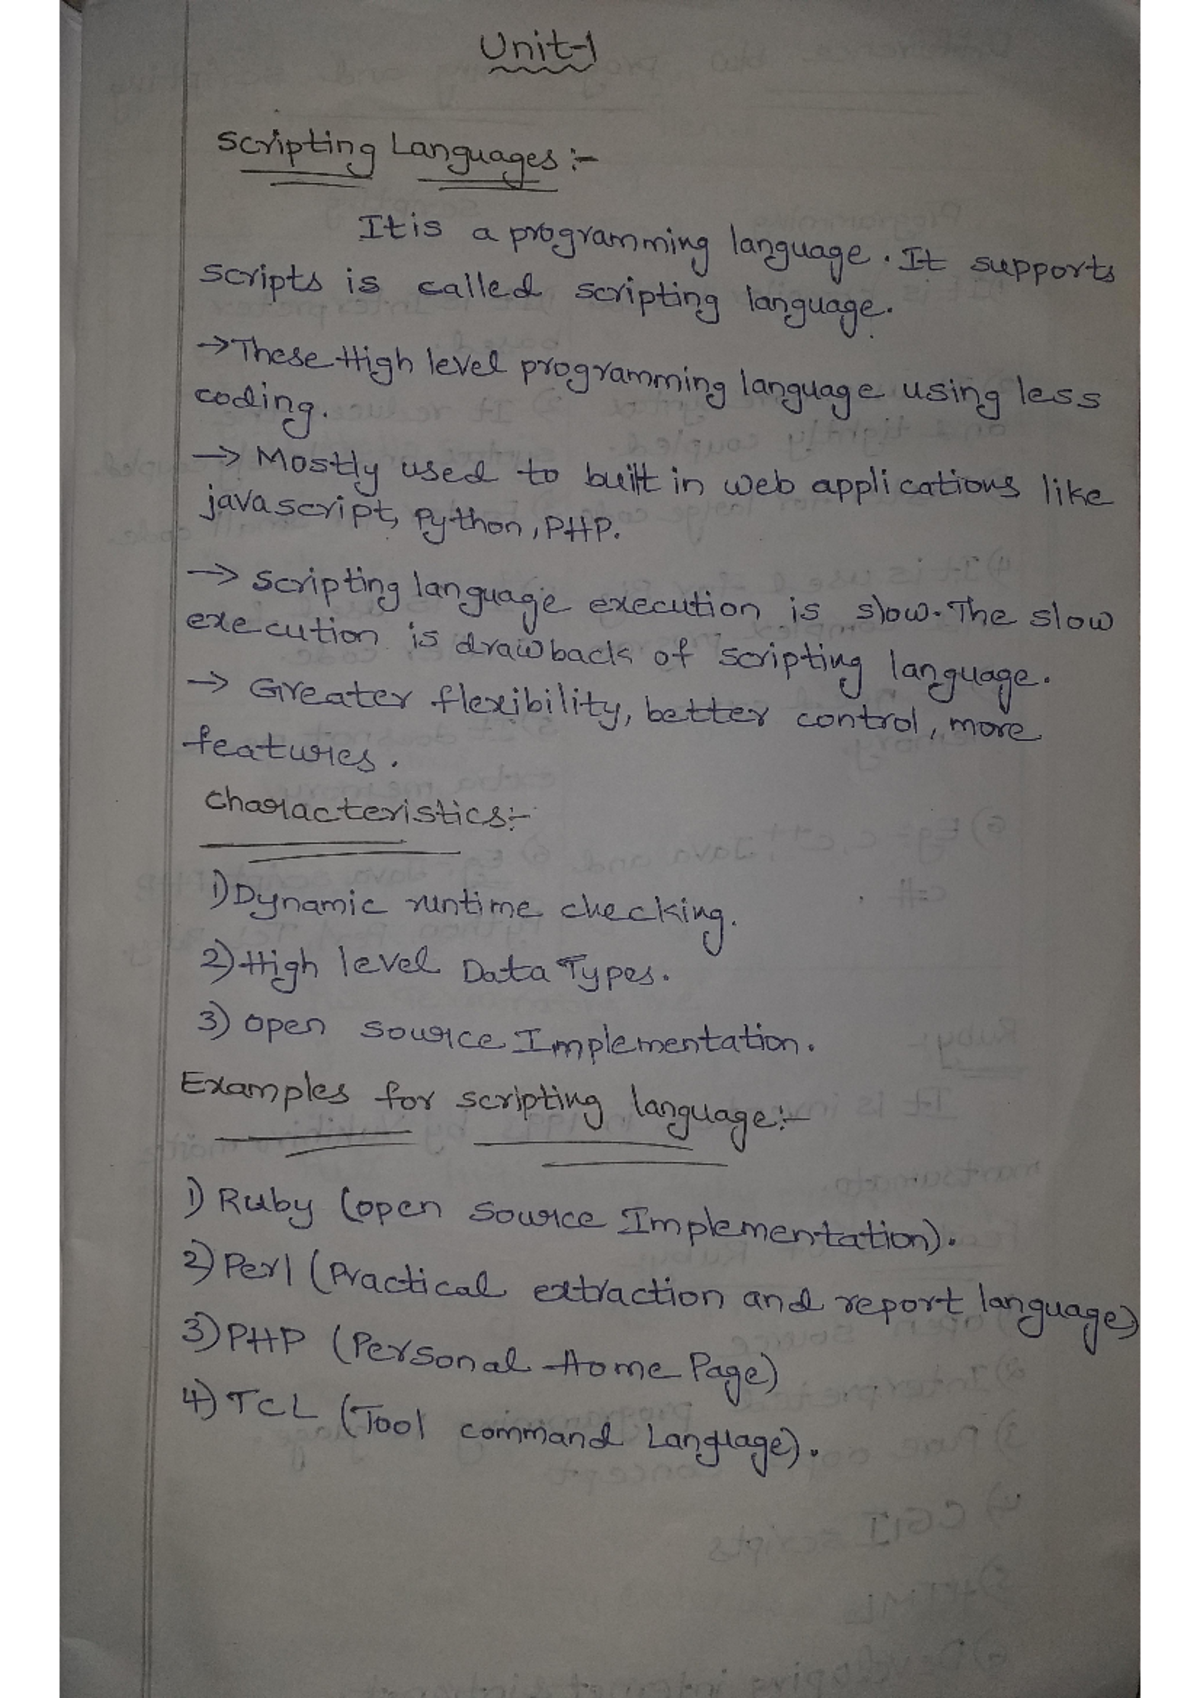 Unit-1
Scripting Languages :-
It is a programming language. It supports
scripts is called scripting language.
→ These High level programming language using less
coding.
→ Mostly used to built in web applications like
javascript, Python, PHP.
→ Scripting language execution is slow. The slow
execution is drawback of scripting language.
→ Greater flexibility, better control, more
features.
Characteristics:-
1) Dynamic runtime checking.
2) High level Data Types.
3) open source Implementation.
Examples for scripting language:-
1) Ruby (open source Implementation).
2) Perl (Practical extraction and report language)
3) PHP (Personal Home Page)
4) TCL (Tool command Language).